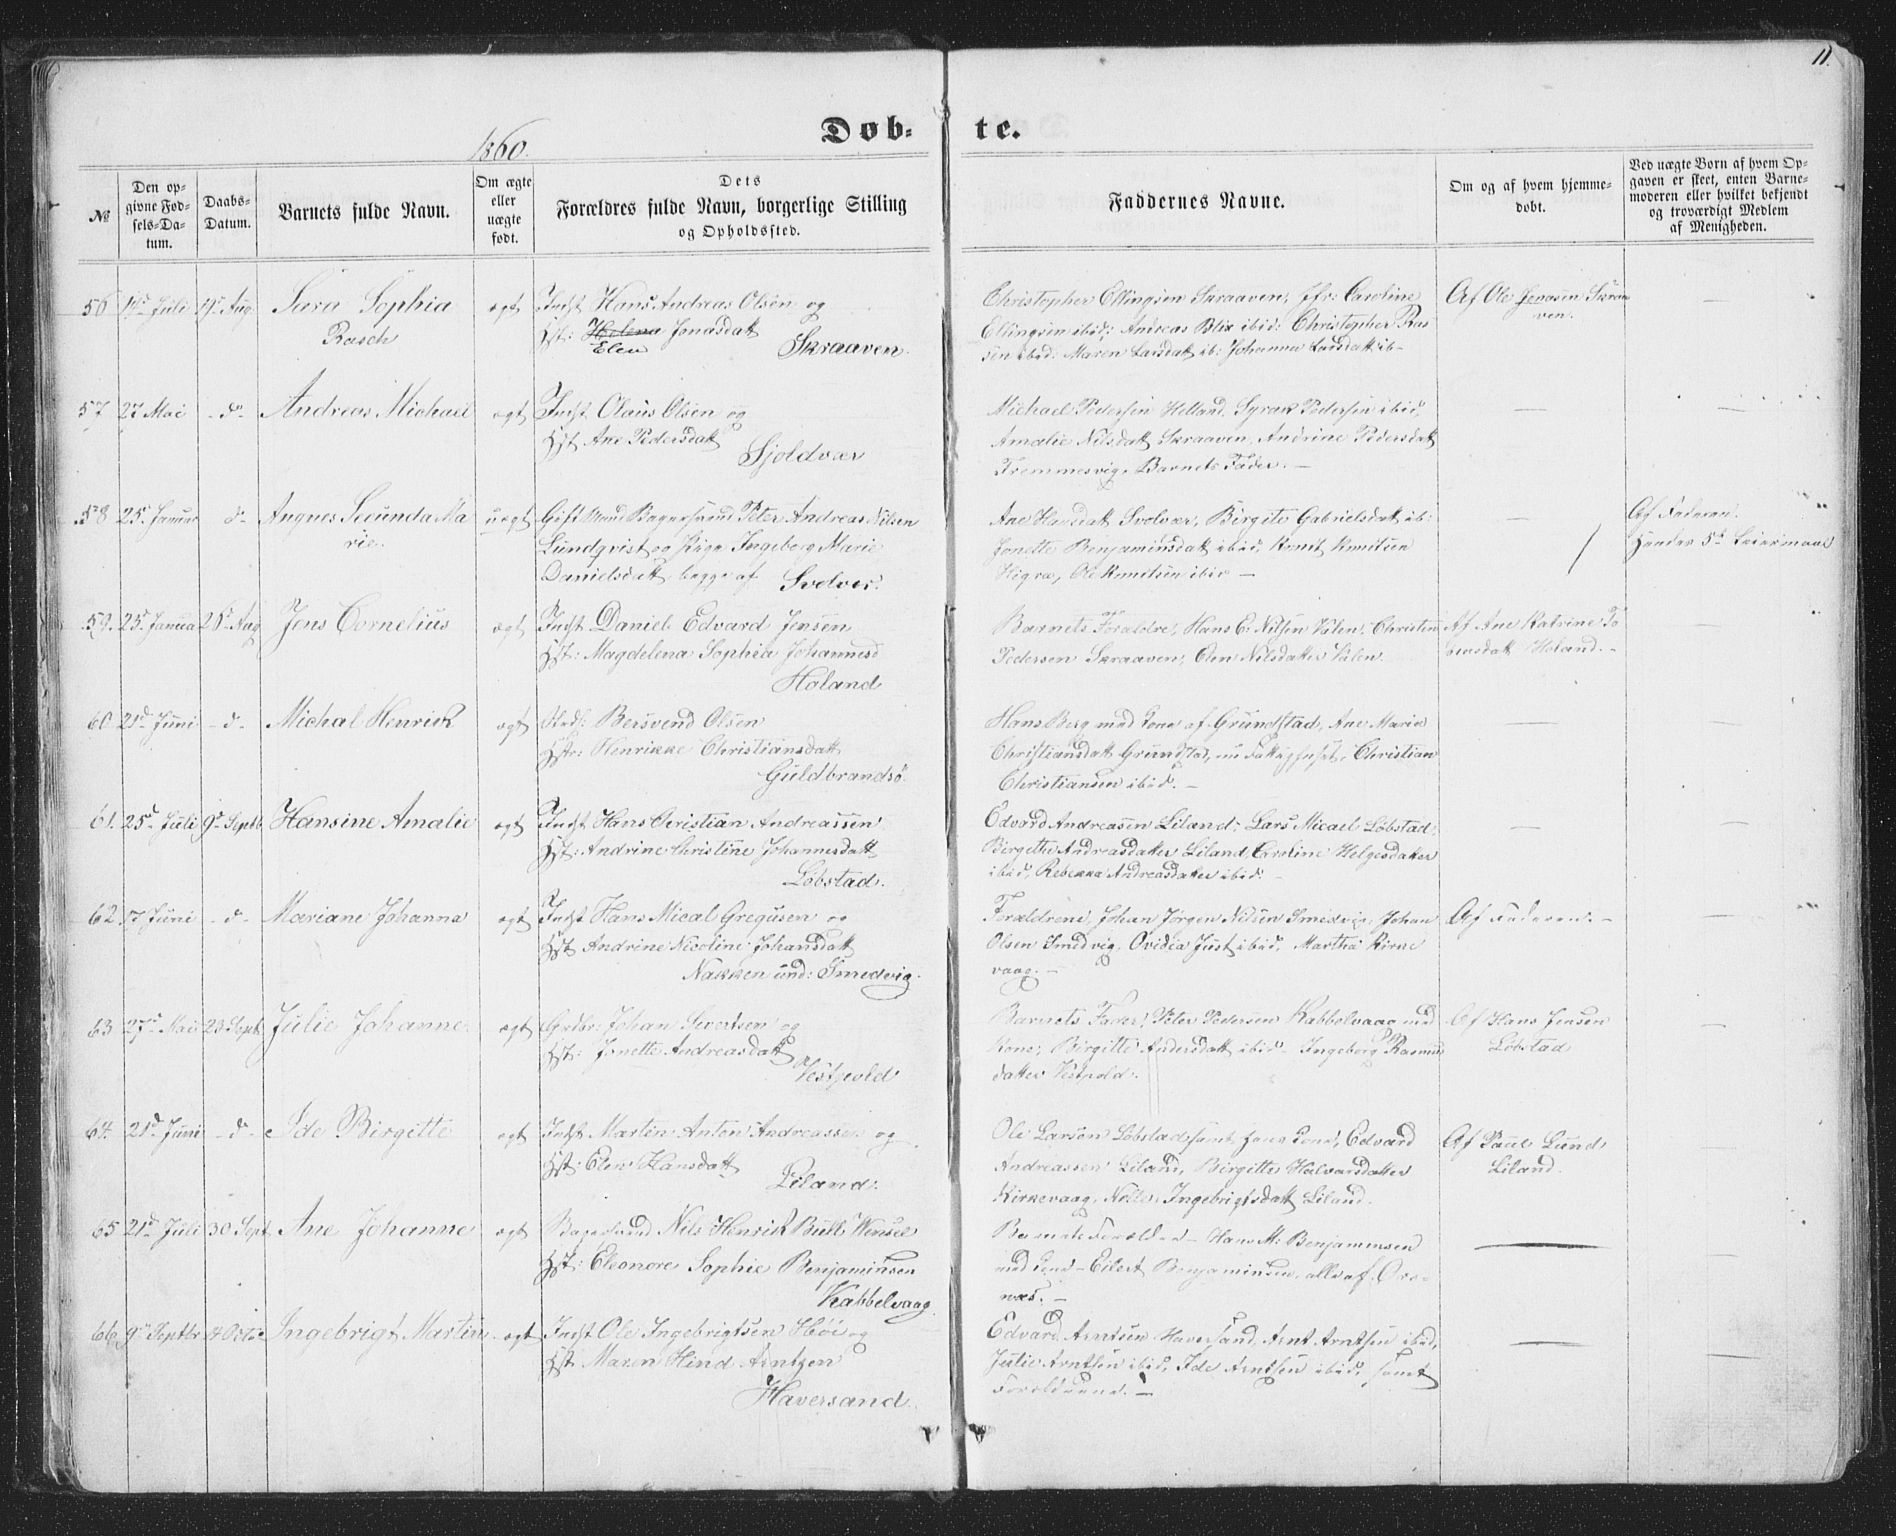 11.
Døb-
te.
1860.
№
Den op-
givne Fød-
sels-Da-
tum.
Daabs-
Datum.
Barnets fulde Navn.
Om ægte
eller
uægte
født.
Dets
Forældres fulde Navn, borgerlige Stilling
og Opholdssted.
Faddernes Navne.
Om og af hvem hjemme-
døbt.
Ved uægte Børn af hvem Op-
gaven er skeet, enten Barne-
moderen eller hvilket bekjendt
og troværdigt Medlem
af Menigheden.
56 19d Juli 19d Aug Sara Sophia ægt Indst Hans Andreas Olsen og
Rasch
Hst: Helena Jonasdatt
Elen Skraaven.
Christopher Ellingsen Skraaven, Jfr: Caroline
Ellingsen ibid; Andreas Blix ibid: Christopher Ras
sen ibid: Maren Larsdatt ib: Johanna Larsdatt ib-
Af Ole Jonasen Skraa
ven.
57 27 Mai -d- Andreas Michael ægt Indst Olaus Olsen og
Hst Ane Pedersdatt
Sjoldvær
Michael Pedersen Helland, Syrak Pedersen ibid,
Amalie Nilsdatt Skraaven, Andrine Pedersdatt
Fremmesvig, Barnets Fader. -
58 25d Januar d- Angnes Secunda Ma uægt Gift Mand Bagersvend Peter Andreas Nilsen
rie.
Lundqvist og Pige Ingeborg Marie
Danielsdatt begge af Svolvær.
Ane Hansdatt Svolvær, Birgite Gabrielsdatt ib:
Jonette Benjaminsdatt ibid, Knut Knutsen
Higrav, Ole Knutsen ibid -
Af Faderen.
Hendes 5te Leiermaal
59. 25d Janua 26d Aug Jens Cornelius ægt Indst Daniel Edvard Jensen
Hst: Magdelena Sophia Johannesd
Holand
Barnets Forældre, Hans C: Nilsen Valen, Christen
Pedersen Skraaven, Elen Nilsdatter Valen.
Af Ane Katrine To
biasdatt Holand. -
60 21d Juni -d- Michal Henrik ægt Bersvend Olsen
Hst: Henrikke Christiansdatt
Guldbrandsø.
Hans Berg med Kone af Grundstad, Ane Maria
Christiansdatt Grundstad, Christian
Christiansen ibid. -
61. 25d Juli 9d Septb Hansine Amalie ægt Indst Hans Christian Andreassen
Hst: Andrine Christine Johannesdatt
Løbstad.
Edvard Andreasen Liland, Lars Micael Løbstad,
Birgethe Andreasdatter Liland, Caroline Helgesdatter
ibid, Rebekka Andreasdatter ibid. -
62 17 Juni -d- Mariane Johanna ægt Indst Hans Mical Gregusen og
Hst Andrine Nicoline Johansdatt
Nakken und: Smedvig.
Forældrene, Johan Jørgen Nilsen Smedvig, Johan
Olsen Smedvig, Ovidia Just ibid, Martha Kirke
vaag. -
Af Faderen. -
63 27d Mai 23 Sept Julie Johanne ægt Grdbr: Johan Sivertsen og
Hst: Jonette Andreasdatt
Vestpold
Barnets Fader, Peter Pedersen Kabbelvaag med
Kone, Birgitte Andersdatt ibid - Ingeborg Rasmus
datter Vestpold.
Af Hans Jensen
Løbstad
64. 21d Juni -d- Ide Birgitte ægt Indst Martin Anton Andreassen og
Hst: Elen Hansdatt
Liland.
Ole Larsen Løbstad samt hans Kone, Edvard
Andreassen Liland, Birgitte Halvarsdatter
Kirkevaag, Ingebrigtsdatt Liland.
Af Paul Lund
Liland.
65 21d Juli 30 Sept Ane Johanne ægt Bagersvend Nils Henrik Bull Wensel
Hst: Eleonore Sophie Benjaminsen
Kabbelvaag.
Barnets Forældre - Hans M: Benjaminsen
med Kone - Eilert Benjaminsen, alle af Ørs-
næs. -
66 9d Septbr 4 Octo Ingebrigt Martin ægt Indst Ole Ingebrigtsen Høi og
Hst: Maren Hind Arntzen
Haversand.
Edvard Arntsen Haversand, Arnt Arntsen ibid,
Julie Arntsen ibid, Ide Arntsen ibid, samt
Forældrene. -